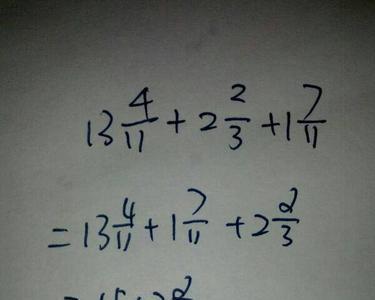 13 4/11 + 2 2/3 + 1 7/11
= 13 4/11 + 1 7/11 + 2 2/3